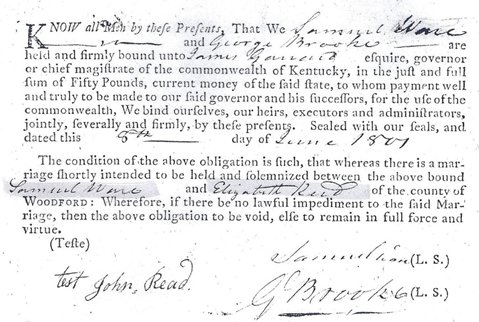 KNOW all Men by these Presents, That We Samuel Ware
and George Brooke are
held and firmly bound unto James Garrard esquire, governor
or chief magistrate of the commonwealth of Kentucky, in the just and full
sum of Fifty Pounds, current money of the said state, to whom payment well
and truly to be made to our said governor and his successors, for the use of the
commonwealth, We bind ourselves, our heirs, executors and administrators,
jointly, severally and firmly, by these presents. Sealed with our seals, and
dated this 8th day of June 1801
The condition of the above obligation is such, that whereas there is a mar-
riage shortly intended to be held and solemnized between the above bound
Samuel Ware and Elizabeth Read of the county of
WOODFORD: Wherefore, if there be no lawful impediment to the said Mar-
riage, then the above obligation to be void, else to remain in full force and
virtue.
(Teste)
Samuel (L. S.)
test John, Read. G Brooke (L. S.)